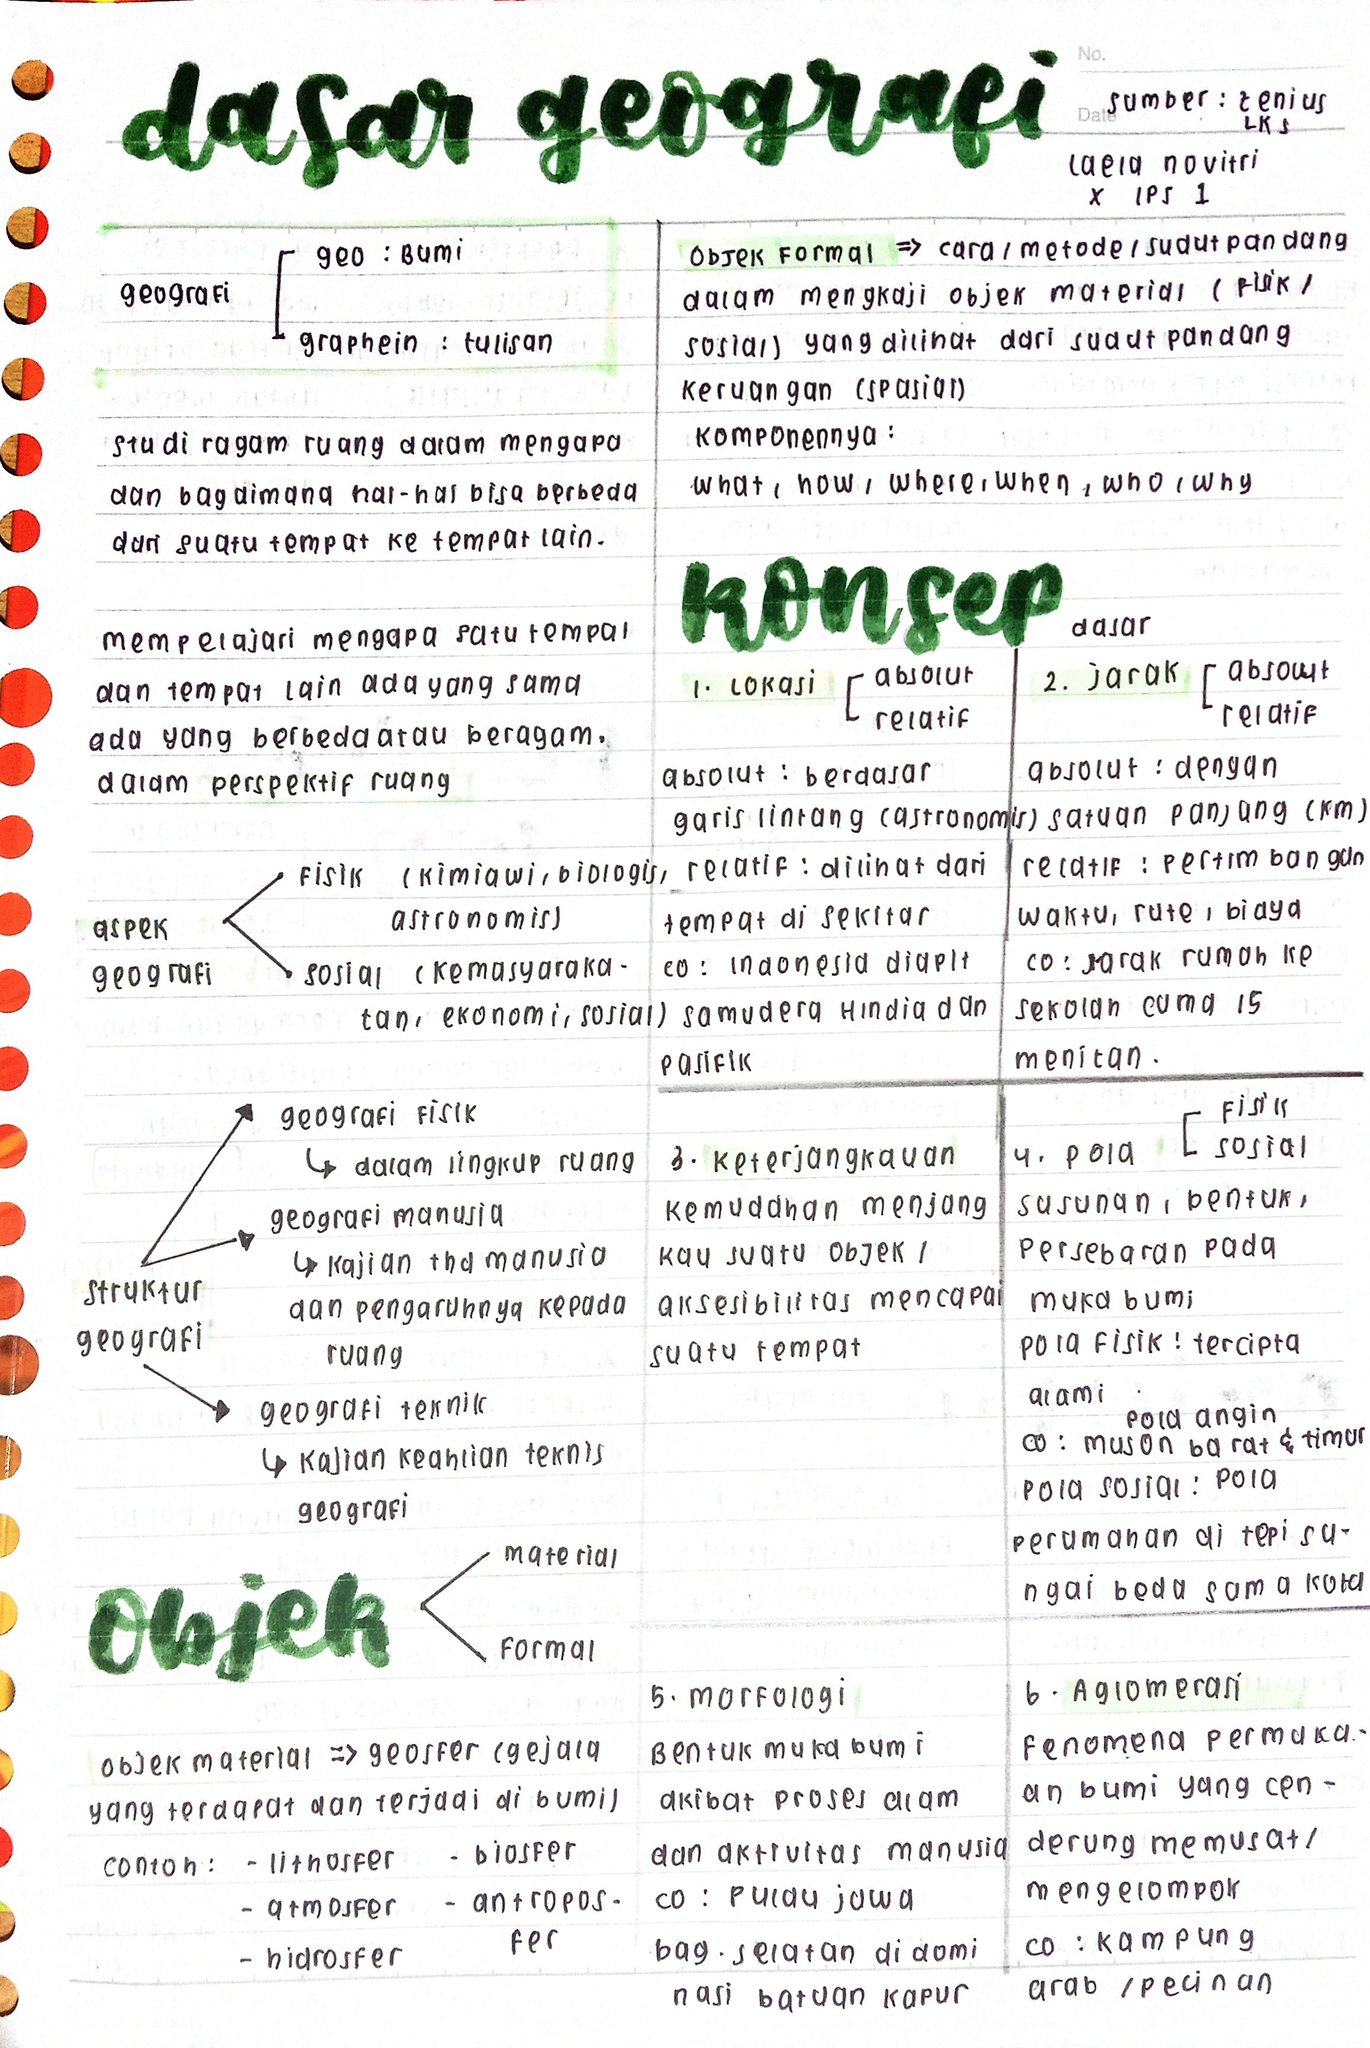 dasar geografi
No.
Date
sumber : zenius
LKS
laela novitri
X IPS 1
geo : Bumi
geografi
graphein : tulisan
studi ragam ruang dalam mengapa
dan bagaimana hal-hal bisa berbeda
dari suatu tempat ke tempat lain.
mempelajari mengapa satu tempat
dan tempat lain ada yang sama
ada yang berbeda atau beragam.
dalam perspektif ruang
aspek
geografi
Fisik (kimiawi, biologis,
astronomis)
sosial (kemasyaraka-
tan, ekonomi, sosial)
struktur
geografi
geografi Fisik
↳ dalam lingkup ruang
geografi manusia
↳ kajian thd manusia
dan pengaruhnya kepada
ruang
geografi teknik
↳ kajian keahlian teknis
geografi
Objek
material
Formal
objek material => geosfer (gejala
yang terdapat dan terjadi di bumi)
contoh : - lithosfer - biosfer
- atmosfer - antropos-
fer
- hidrosfer
Objek Formal => cara/metode/sudut pandang
dalam mengkaji objek material (Fisik/
sosial) yang dilihat dari sudut pandang
keruangan (spasial)
Komponennya :
what, how, where, when, who, why
Konsep
dasar
1. Lokasi
absolut
relatif
absolut : berdasar
garis lintang (astronomis)
relatif : dilihat dari
tempat di sekitar
co : Indonesia diapit
samudera Hindia dan
pasifik
2. jarak
absolut
relatif
absolut : dengan
satuan panjang (km)
relatif : pertimbangan
waktu, rute, biaya
co : jarak rumah ke
sekolah cuma 15
menitan.
3. Keterjangkauan
kemudahan menjang
kau suatu objek/
aksesibilitas mencapai
suatu tempat
4. pola
Fisik
sosial
susunan, bentuk,
persebaran pada
muka bumi
pola fisik : tercipta
alami
pola angin
co : muson barat & timur
pola sosial : pola
perumahan di tepi su-
ngai beda sama kota
5. Morfologi
Bentuk muka bumi
akibat proses alam
dan aktivitas manusia
co : pulau jawa
bag. selatan didomi
nasi batuan kapur
6. Aglomerasi
Fenomena permuka-
an bumi yang cen-
derung memusat/
mengelompok
co : kampung
arab / pecinan